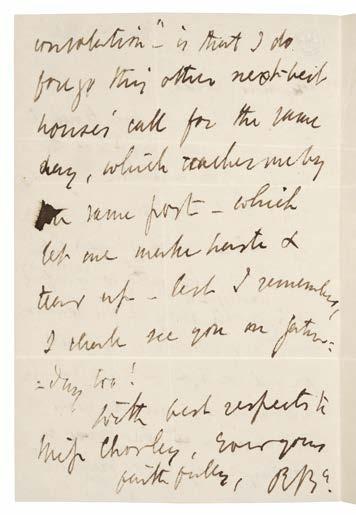 consolation" – is that I do
forego this other next-best
house's call for the same
day, which reaches me by
the same post – which
let me make haste &
tear up – lest I remember,
I shall see you on Satur=
=day too!
With best respects to
Miss Chorley, Ever yours
faithfully, RB.